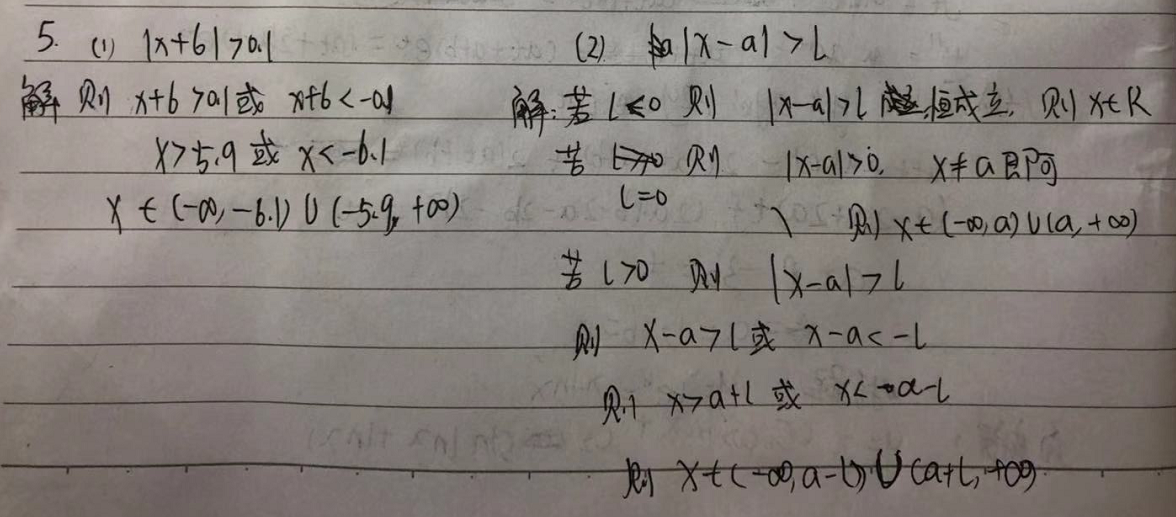 5. (1) |x+6|>0.1
解 则 x+6>0.1或 x+6<-0.1
x>5.9 或 x<-6.1
x∈(-∞,-6.1)∪(-5.9,+∞)
(2) |x-a|>l
解:若 l<0 则 |x-a|>l 恒成立, 则 x∈R
若 l=0 则 |x-a|>0. x≠a 即可
则 x∈(-∞,a)∪(a,+∞)
若 l>0 则 |x-a|>l
则 x-a>l 或 x-a<-l
则 x>a+l 或 x<a-l
则 x∈(-∞,a-l)∪(a+l,+∞)